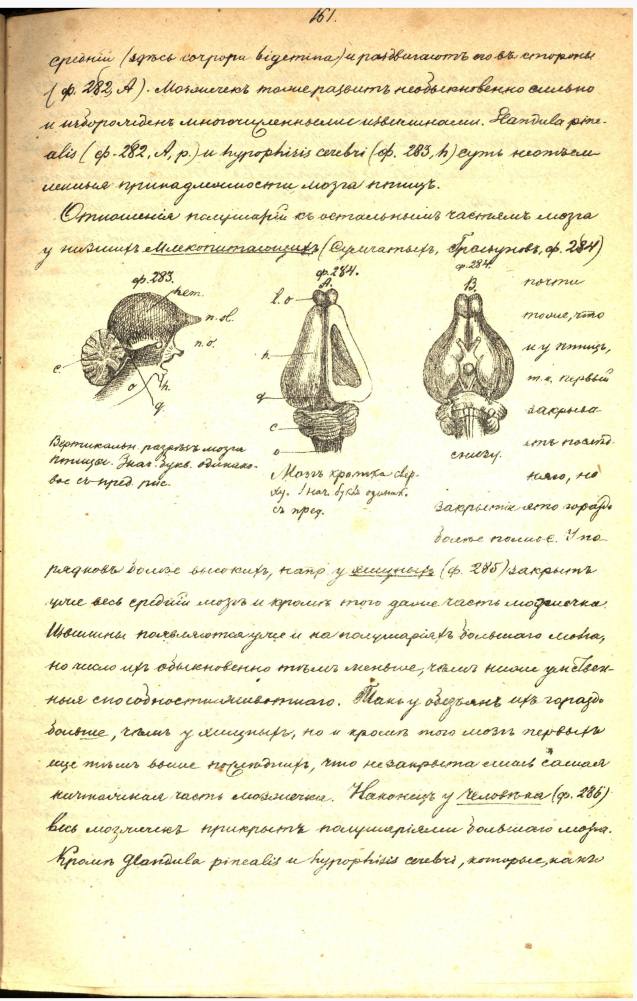 161.
средній (здѣсь corpora bigemina) и раздвигаютъ его въ стороны
(ф. 282, А). Мозжечекъ тоже развитъ необыкновенно сильно
и изборожденъ многочисленными извилинами. Glandula pine-
alis (ф. 282, А, р.) и hypophisis cerebri (ф. 283, h) суть неотъем-
лемыя принадлежности мозга птицъ.
Отношенія полушарій къ остальнымъ частямъ мозга
у низшихъ Млекопитающихъ (Сумчатыхъ, Грызуновъ, ф. 284)
ф. 283.
hem.
n. ol.
n. o.
c.
o
h.
g.
Вертикальн. разрѣзъ мозга
птицы. Знач. букв. одинако-
вое съ пред. рис.
ф. 284.
А.
l. o
h.
g
c
o
Мозгъ кролика свер-
ху. Знач. буквъ одинак.
съ пред.
ф. 284.
В.
снизу.
почти
тоже, что
и у птицъ,
т. е. первый
закрыва
етъ послѣд
няго, но
закрытіе это гораздо
болѣе полное. У по-
рядковъ болѣе высокихъ, напр. у хищныхъ (ф. 285) закрытъ
уже весь средній мозгъ и кромѣ того даже часть мозжечка.
Извилины появляются уже и на полушаріяхъ большаго мозга,
но число ихъ обыкновенно тѣмъ меньше, чѣмъ ниже умствен-
ныя способности животнаго. Такъ у обезьянъ ихъ гораздо
больше, чѣмъ у хищныхъ, но и кромѣ того мозгъ первыхъ
еще тѣмъ выше послѣднихъ, что не закрыта лишь самая
ничтожная часть мозжечка. Наконецъ у Человѣка (ф. 286)
весь мозжечекъ прикрытъ полушаріями большаго мозга.
Кромѣ Glandula pinealis и hypophisis cerebri, которые, какъ